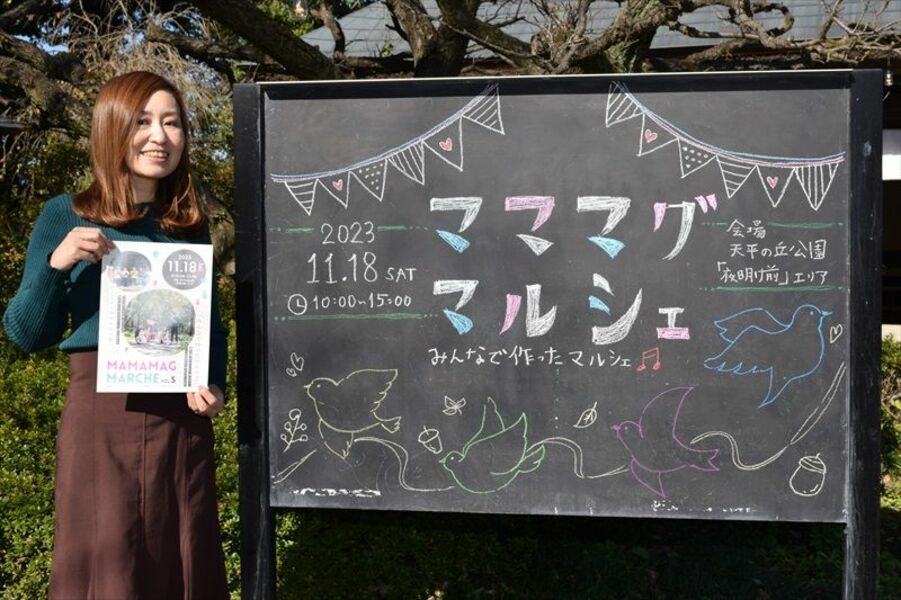 2023
11.18 SAT
10:00~15:00
ママママグ
マルシェ
みんなで作ったマルシェ♫
会場
天平の丘公園
「夜明け前」エリア
2023
11.18
MAMAMAG
MARCHE VOL.5